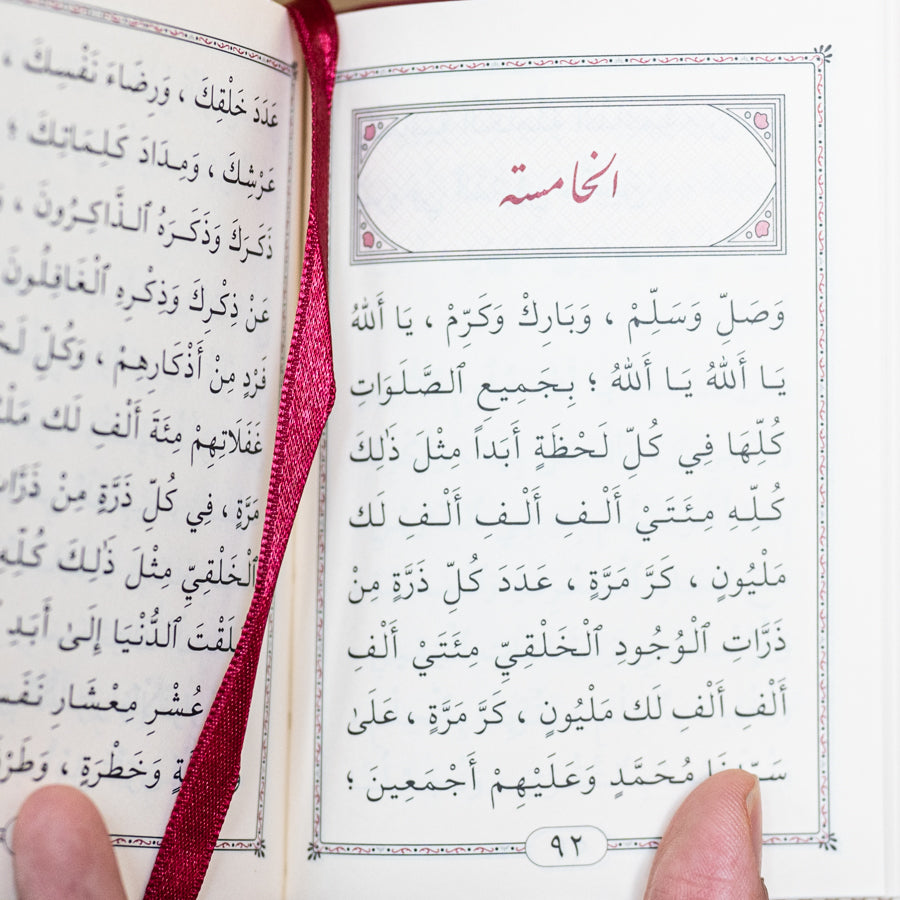 الخامسة
وَصَلِّ وَسَلِّمْ ، وَبَارِكْ وَكَرِّمْ ، يَا أَللهُ
يَا أَللهُ يَا أَللهُ ؛ بِجَمِيعِ ٱلصَّلَوَاتِ
كُلِّهَا فِي كُلِّ لَحْظَةٍ أَبَداً مِثْلَ ذَٰلِكَ
كُلِّهِ مِئَتَيْ أَلْفِ أَلْفِ أَلْفِ لَك
مَلْيُونٍ ، كَرَّ مَرَّةٍ ، عَدَدَ كُلِّ ذَرَّةٍ مِنْ
ذَرَّاتِ ٱلْوُجُودِ ٱلْخَلْقِيِّ مِئَتَيْ أَلْفِ
أَلْفِ أَلْفِ لَك مَلْيُونٍ ، كَرَّ مَرَّةٍ ، عَلَىٰ
مُحَمَّدٍ وَعَلَيْهِمْ أَجْمَعِينَ ؛
٩٢
عَدَدَ خَلْقِكَ ، وَرِضَاءَ نَفْسِكَ ،
عَرْشِكَ ، وَمِدَادَ كَلِمَاتِكَ ؛
ذَكَرَكَ وَذَكَرَهُ ٱلذَّاكِرُونَ ،
عَنْ ذِكْرِكَ وَذِكْرِهِ ٱلْغَافِلُونَ
فَرْدٍ مِنْ أَذْكَارِهِمْ ، وَكُلِّ
غَفَلَاتِهِمْ مِئَةَ أَلْفِ لَك
مَرَّةٍ ، فِي كُلِّ ذَرَّةٍ مِنْ
ٱلْخَلْقِيِّ مِثْلَ ذَٰلِكَ كُلِّهِ
ٱلدُّنْيَا إِلَىٰ أَبَدِ
عُشْرِ مِعْشَارِ
وَخَطْرَةٍ ،